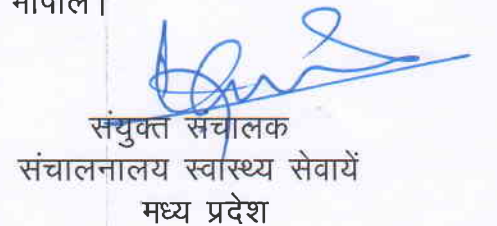 भोपाल।
संयुक्त संचालक
संचालनालय स्वास्थ्य सेवायें
मध्य प्रदेश